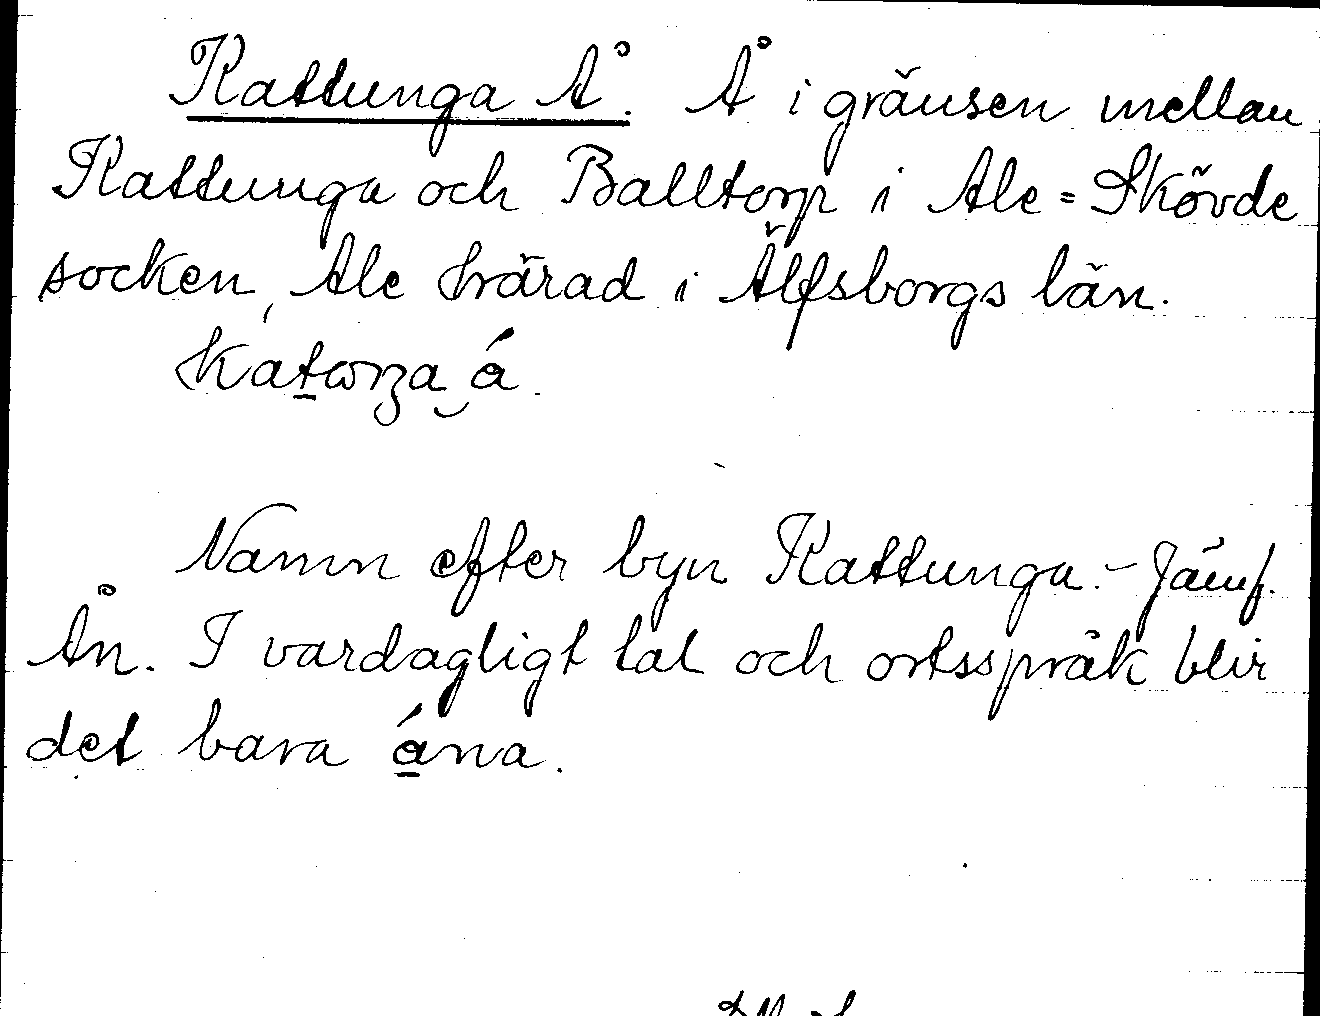 Kattunga Å. Å i gränsen mellan
Kattunga och Balltorp i Ale=Skövde
socken, Ale härad i Älfsborgs län.
Namn efter byn Kattunga. – Jämf.
Ån. I vardagligt tal och ortsspråk blir
det bara ána.